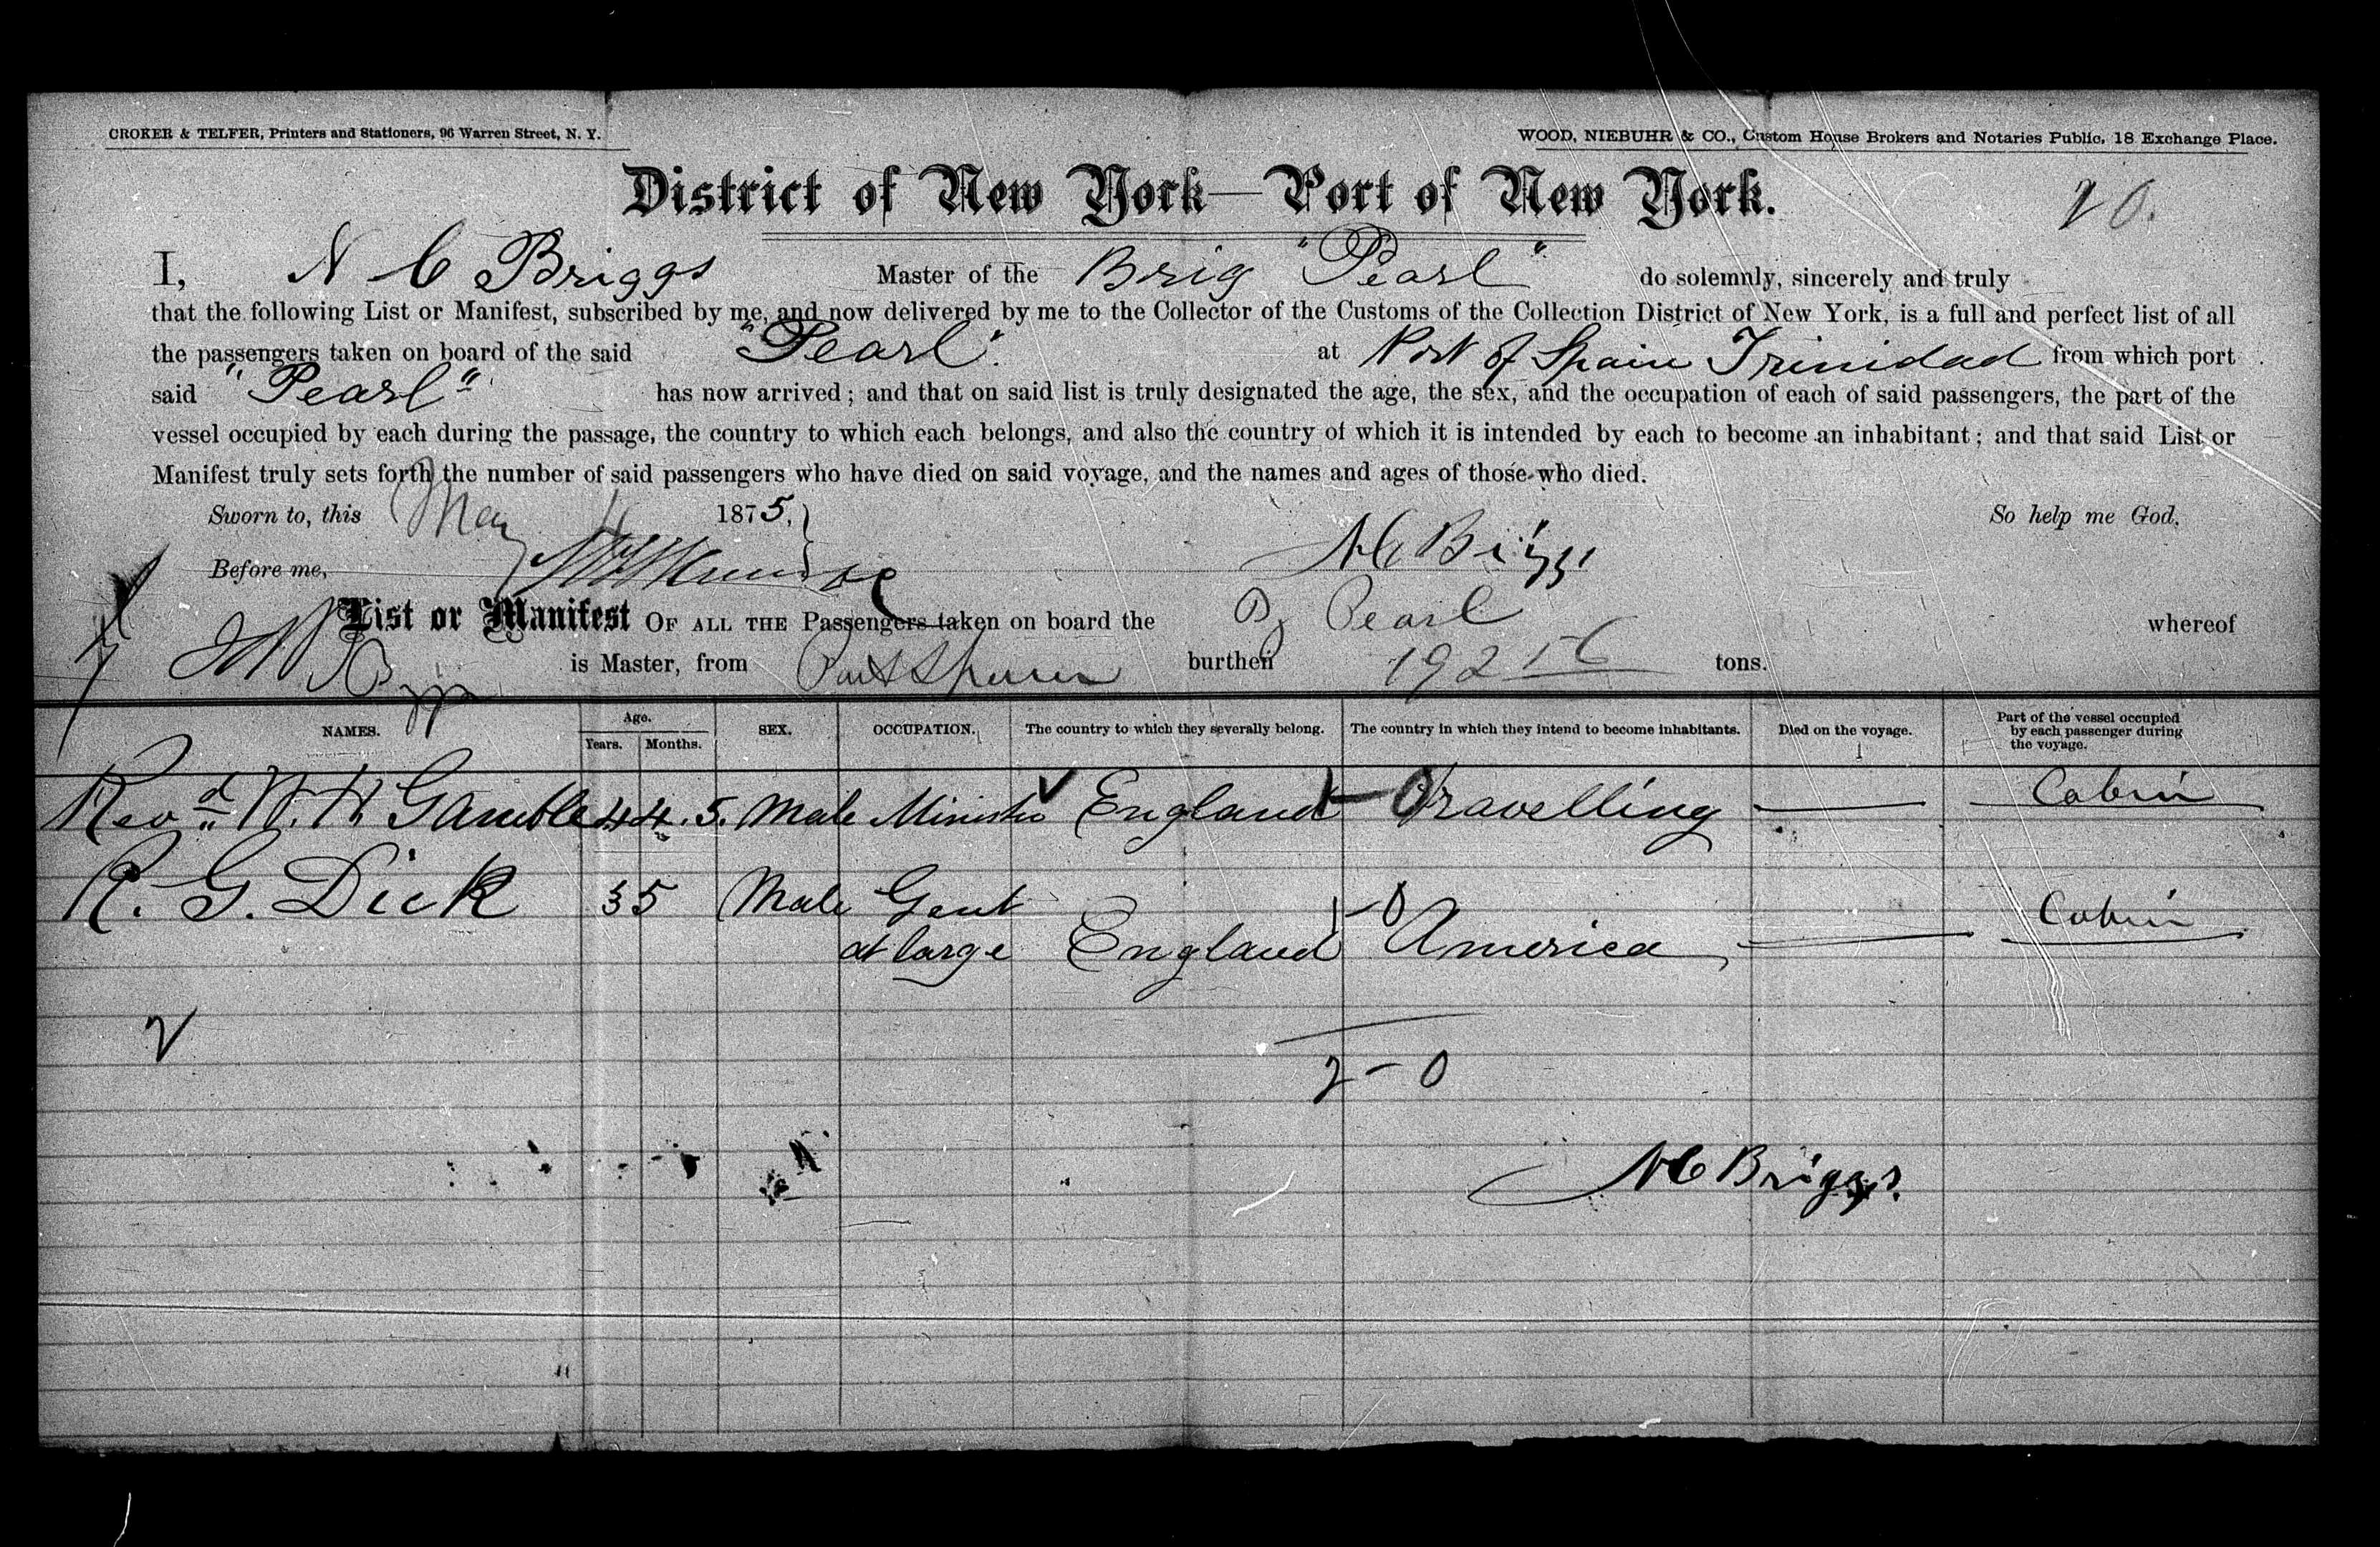 CROKER & TELFER, Printers and Stationers, 96 Warren Street, N. Y.
WOOD, NIEBUHR & CO., Custom House Brokers and Notaries Public, 18 Exchange Place.
District of New York—Port of New York.
20.
I, N C Briggs Master of the Brig "Pearl" do solemnly, sincerely and truly
that the following List or Manifest, subscribed by me, and now delivered by me to the Collector of the Customs of the Collection District of New York, is a full and perfect list of all
the passengers taken on board of the said "Pearl" at Port of Spain Trinidad from which port
said "Pearl" has now arrived; and that on said list is truly designated the age, the sex, and the occupation of each of said passengers, the part of the
vessel occupied by each during the passage, the country to which each belongs, and also the country of which it is intended by each to become an inhabitant; and that said List or
Manifest truly sets forth the number of said passengers who have died on said voyage, and the names and ages of those who died.
Sworn to, this May 4 1875. So help me God.
Before me, N C Briggs
List or Manifest OF ALL THE Passengers taken on board the Bg Pearl whereof
is Master, from Port Spain burthen 192 56 tons.
NAMES. Age. Years. Months. SEX. OCCUPATION. The country to which they severally belong. The country in which they intend to become inhabitants. Died on the voyage. Part of the vessel occupied by each passenger during the voyage.
Revd W. H. Gamble 44. 5. Male Minister England 1-0 Travelling — Cabin
R. G. Dick 35 Male Gent at large England 1-0 America — Cabin
2
2-0
N C Briggs.